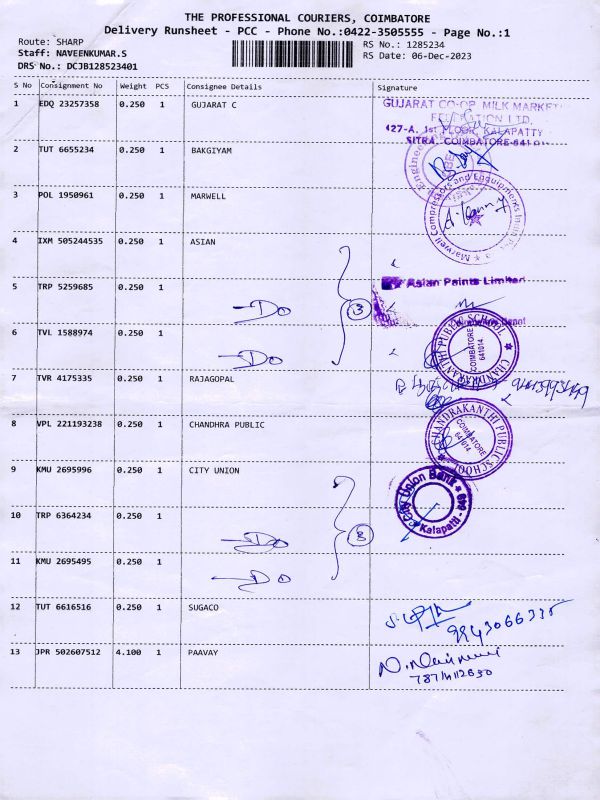 THE PROFESSIONAL COURIERS, COIMBATORE
Delivery Runsheet - PCC - Phone No.:0422-3505555 - Page No.:1
Route: SHARP
RS No.: 1285234
Staff: NAVEENKUMAR.S
RS Date: 06-Dec-2023
DRS No.: DCJB128523401
S No Consignment No Weight PCS Consignee Details Signature
1 EDQ 23257358 0.250 1 GUJARAT C
GUJARAT CO-OP MILK MARKET
FEDERATION LTD,
427-A, 1st FLOOR, KALAPATTY
SITRA, COIMBATORE-641
2 TUT 6655234 0.250 1 BAKGIYAM
3 POL 1950961 0.250 1 MARWELL
Marwell Compressors and Equipments India
4 IXM 505244535 0.250 1 ASIAN
Asian Paints Limited
5 TRP 5259685 0.250 1
Do
3
Depot
6 TVL 1588974 0.250 1
Do
CHANDRAKANTHI PUBLIC SCHOOL
COIMBATORE
641014
7 TVR 4175335 0.250 1 RAJAGOPAL
8 VPL 221193238 0.250 1 CHANDHRA PUBLIC
CHANDRAKANTHI PUBLIC SCHOOL
COIMBATORE
641014
9 KMU 2695996 0.250 1 CITY UNION
City Union Bank
Kalapatti
10 TRP 6364234 0.250 1
Do
3
11 KMU 2695495 0.250 1
Do
12 TUT 6616516 0.250 1 SUGACO
9943066335
13 JPR 502607512 4.100 1 PAAVAY